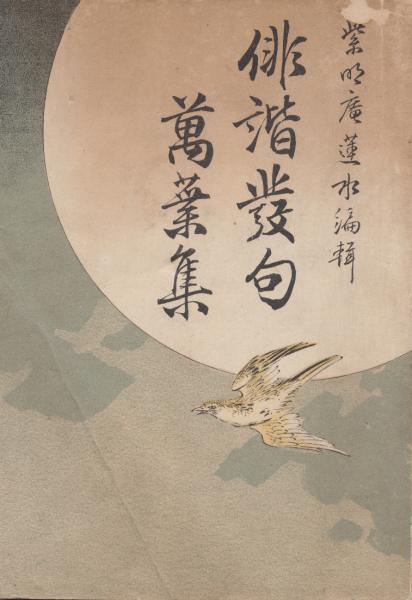 紫明廣蓮水編輯
俳諧發句
萬葉集